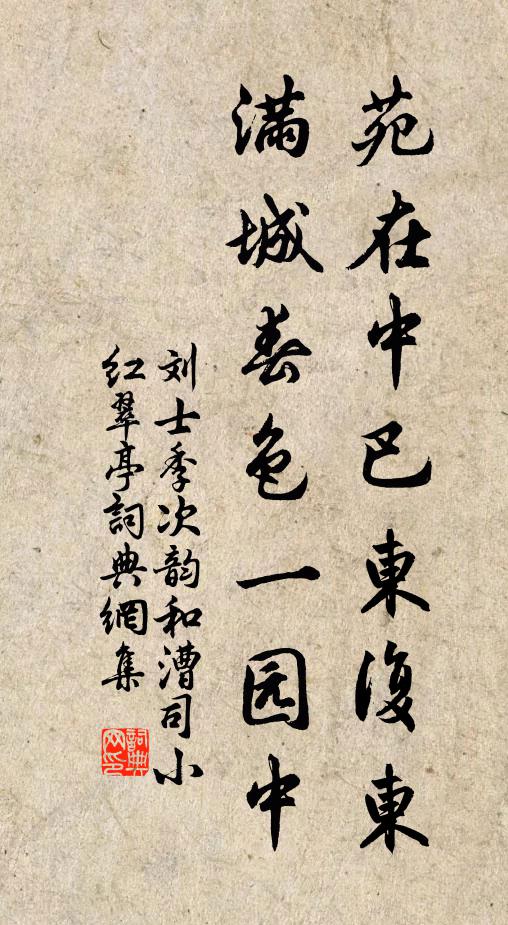 苑在中巴東復東
满城春色一园中
刘士季次韵和漕司小
红翠亭詞典網集
詞典网印